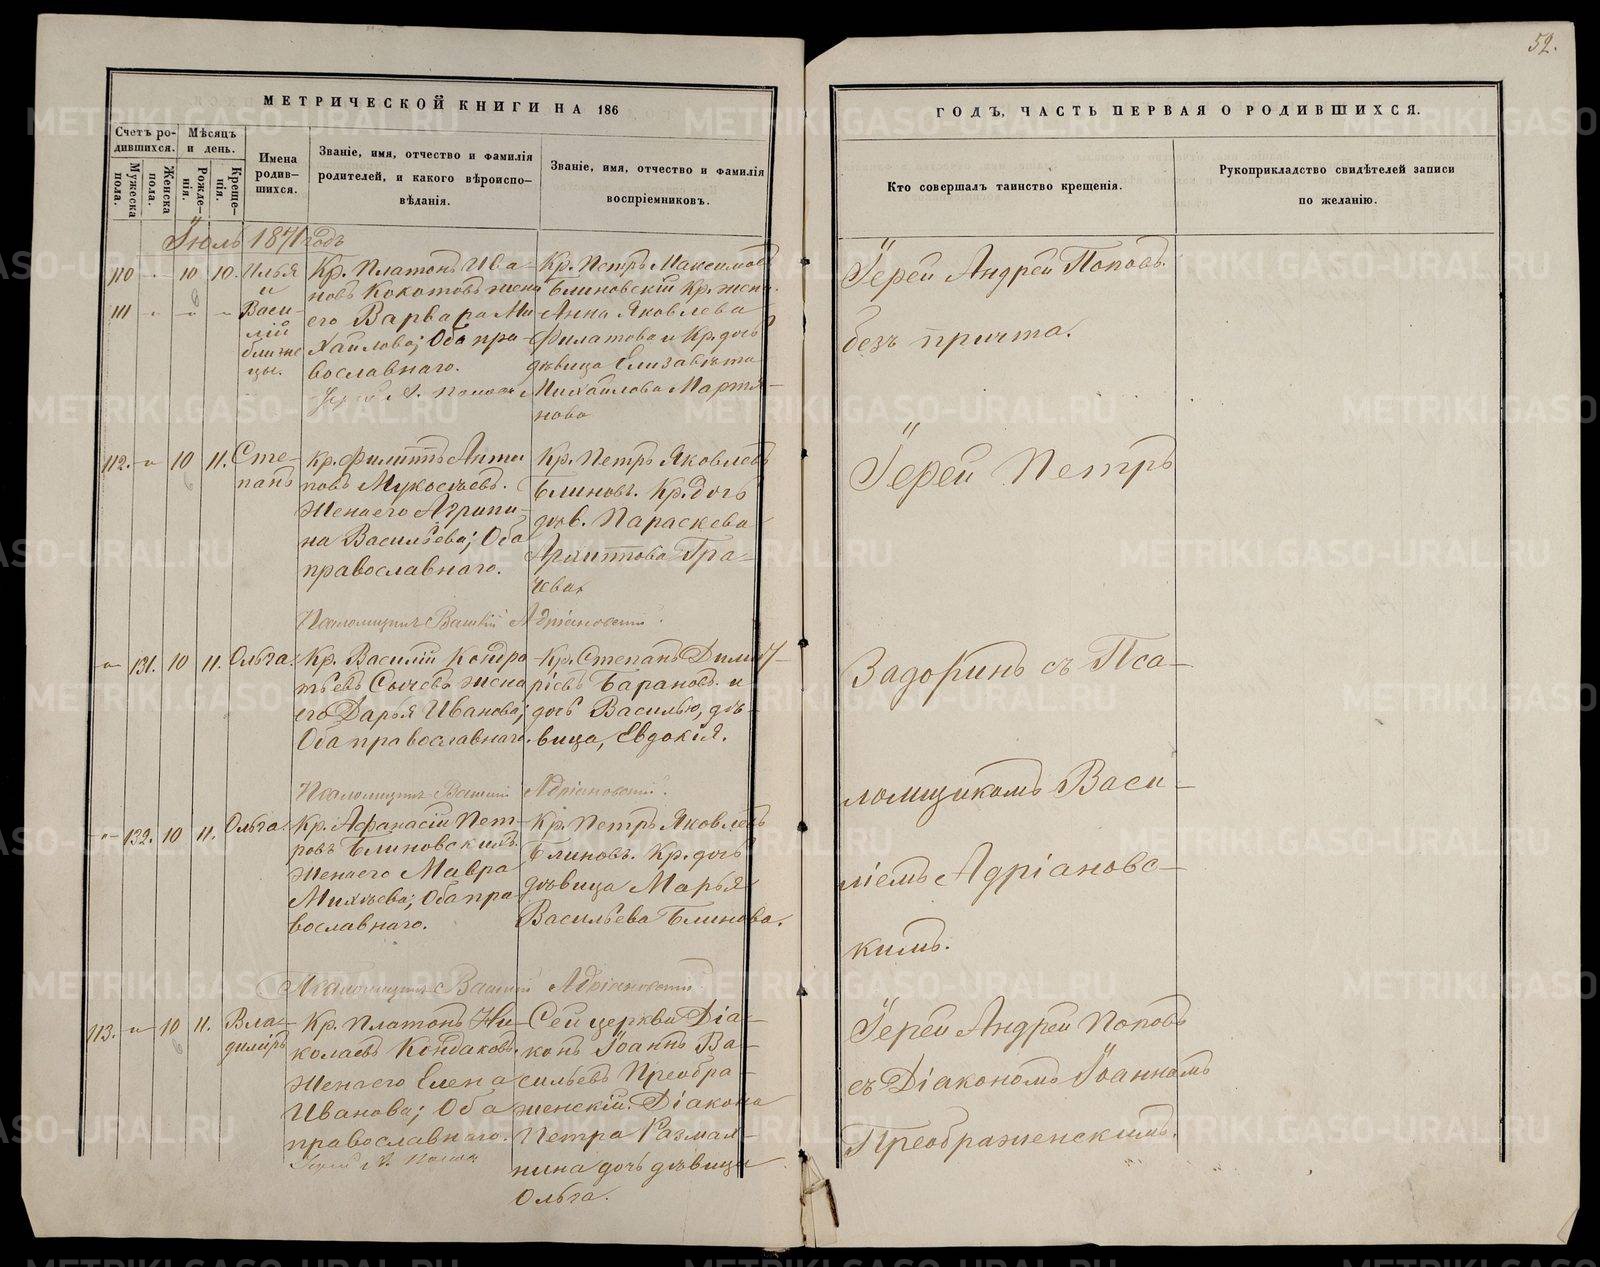 52.
МЕТРИЧЕСКОЙ КНИГИ НА 186
Счетъ ро-
дившихся.
Мѣсяцъ
и день.
Мужеска
пола.
Женска
пола.
Рожде-
нія.
Креще-
нія.
Имена
родив-
шихся.
Званіе, имя, отчество и фамилія
родителей, и какого вѣроиспо-
вѣданія.
Званіе, имя, отчество и фамилія
воспріемниковъ.
ГОДЪ, ЧАСТЬ ПЕРВАЯ О РОДИВШИХСЯ.
Кто совершалъ таинство крещенія.
Рукоприкладство свидѣтелей записи
по желанію.
Іюль 1871 годъ
110 - 10 10.
111 - - -
Илья
и
Васи-
лій
близне
цы.
Кр. Платонъ Ива-
новъ Кокотовъ жена
его Варвара Ми
хайлова; Оба пра-
вославнаго.
Іерей А. Поповъ
Кр. Петръ Максимовъ
Блиновскій Кр. жена
Анна Яковлева
Филатова и Кр. дочь
дѣвица Елизавѣта
Михайлова Мартя-
нова
Іерей Андрей Поповъ
безъ причта.
112. - 10 11.
Сте-
панъ
Кр. Филиппъ Анти
повъ Мукосѣевъ.
Жена его Агрипи-
на Васильева; Оба
православнаго.
Кр. Петръ Яковлевъ
Блиновъ. Кр. дочь
дѣв. Параскева
Архиппова Гра-
чева.
Псаломщикъ Василій Адріановскій.
Іерей Петръ
- 131. 10 11.
Ольга.
Кр. Василій Кондра
тьевъ Сычевъ жена
его Дарья Иванова;
Оба православнаго.
Кр. Степанъ Димит-
ріевъ Барановъ. и
дочь Василью, дѣ-
вица, Евдокія.
Псаломщикъ Василій Адріановскій.
Задоринъ съ Пса-
ломщикомъ Васи-
- 132. 10 11.
Ольга.
Кр. Афанасій Пет-
ровъ Блиновскихъ.
Жена его Мавра
Михѣева; Оба пра
вославнаго.
Кр. Петръ Яковлевъ
Блиновъ. Кр. дочь
дѣвица Марья
Васильева Блинова.
Псаломщикъ Василій Адріановскій.
ліемъ Адріановс-
кимъ.
113. - 10 11.
Вла-
димиръ
Кр. Платонъ Ни-
колаевъ Кондаковъ.
Жена его Елена
Иванова; Оба
православнаго.
Іерей А. Поповъ
Сей церкви Діа-
конъ Іоаннъ Ва-
сильевъ Преобра-
женскій. Діакона
Петра Размах-
нина дочь дѣвица
Ольга.
Іерей Андрей Поповъ
съ Діакономъ Іоанномъ
Преображенскимъ.